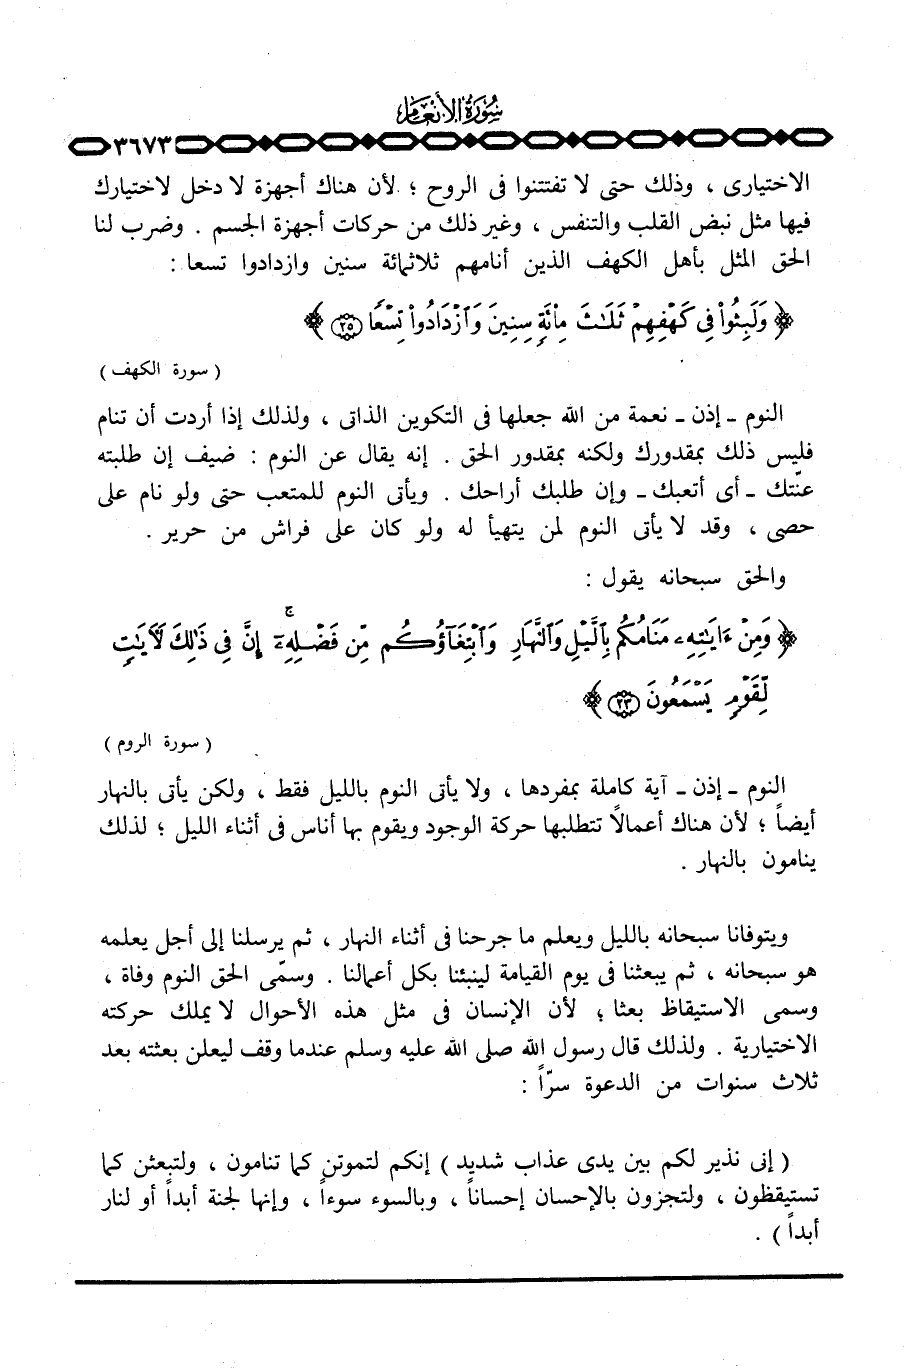 سورة الأنعام
٣٦٧٣
الاختيارى ، وذلك حتى لا تفتتنوا فى الروح ؛ لأن هناك أجهزة لا دخل لاختيارك
فيها مثل نبض القلب والتنفس ، وغير ذلك من حركات أجهزة الجسم . وضرب لنا
الحق المثل بأهل الكهف الذين أنامهم ثلاثمائة سنين وازدادوا تسعا :
﴿ وَلَبِثُواْ فِى كَهْفِهِمْ ثَلَٰثَ مِاْئَةٍ سِنِينَ وَٱزْدَادُواْ تِسْعًا ﴿٢٥﴾ ﴾
( سورة الكهف )
النوم ـ إذن ـ نعمة من الله جعلها فى التكوين الذاتى ، ولذلك إذا أردت أن تنام
فليس ذلك بمقدورك ولكنه بمقدور الحق . إنه يقال عن النوم : ضيف إن طلبته
عنّتك ـ أى أتعبك ـ وإن طلبك أراحك . ويأتى النوم للمتعب حتى ولو نام على
حصى ، وقد لا يأتى النوم لمن يتهيأ له ولو كان على فراش من حرير .
والحق سبحانه يقول :
﴿ وَمِنْ ءَايَٰتِهِۦ مَنَامُكُم بِٱلَّيْلِ وَٱلنَّهَارِ وَٱبْتِغَآؤُكُم مِّن فَضْلِهِۦٓ ۚ إِنَّ فِى ذَٰلِكَ لَأَيَٰتٍ
لِّقَوْمٍ يَسْمَعُونَ ﴿٢٣﴾ ﴾
( سورة الروم )
النوم ـ إذن ـ آية كاملة بمفردها ، ولا يأتى النوم بالليل فقط ، ولكن يأتى بالنهار
أيضاً ؛ لأن هناك أعمالاً تتطلبها حركة الوجود ويقوم بها أناس فى أثناء الليل ؛ لذلك
ينامون بالنهار .
ويتوفانا سبحانه بالليل ويعلم ما جرحنا فى أثناء النهار ، ثم يرسلنا إلى أجل يعلمه
هو سبحانه ، ثم يبعثنا فى يوم القيامة لينبئنا بكل أعمالنا . وسمّى الحق النوم وفاة ،
وسمى الاستيقاظ بعثا ؛ لأن الإنسان فى مثل هذه الأحوال لا يملك حركته
الاختيارية . ولذلك قال رسول الله صلى الله عليه وسلم عندما وقف ليعلن بعثته بعد
ثلاث سنوات من الدعوة سرّاً :
( إنى نذير لكم بين يدى عذاب شديد ) إنكم لتموتن كما تنامون ، ولتبعثن كما
تستيقظون ، ولتجزون بالإحسان إحساناً ، وبالسوء سوءاً ، وإنها لجنة أبداً أو لنار
أبداً ) .